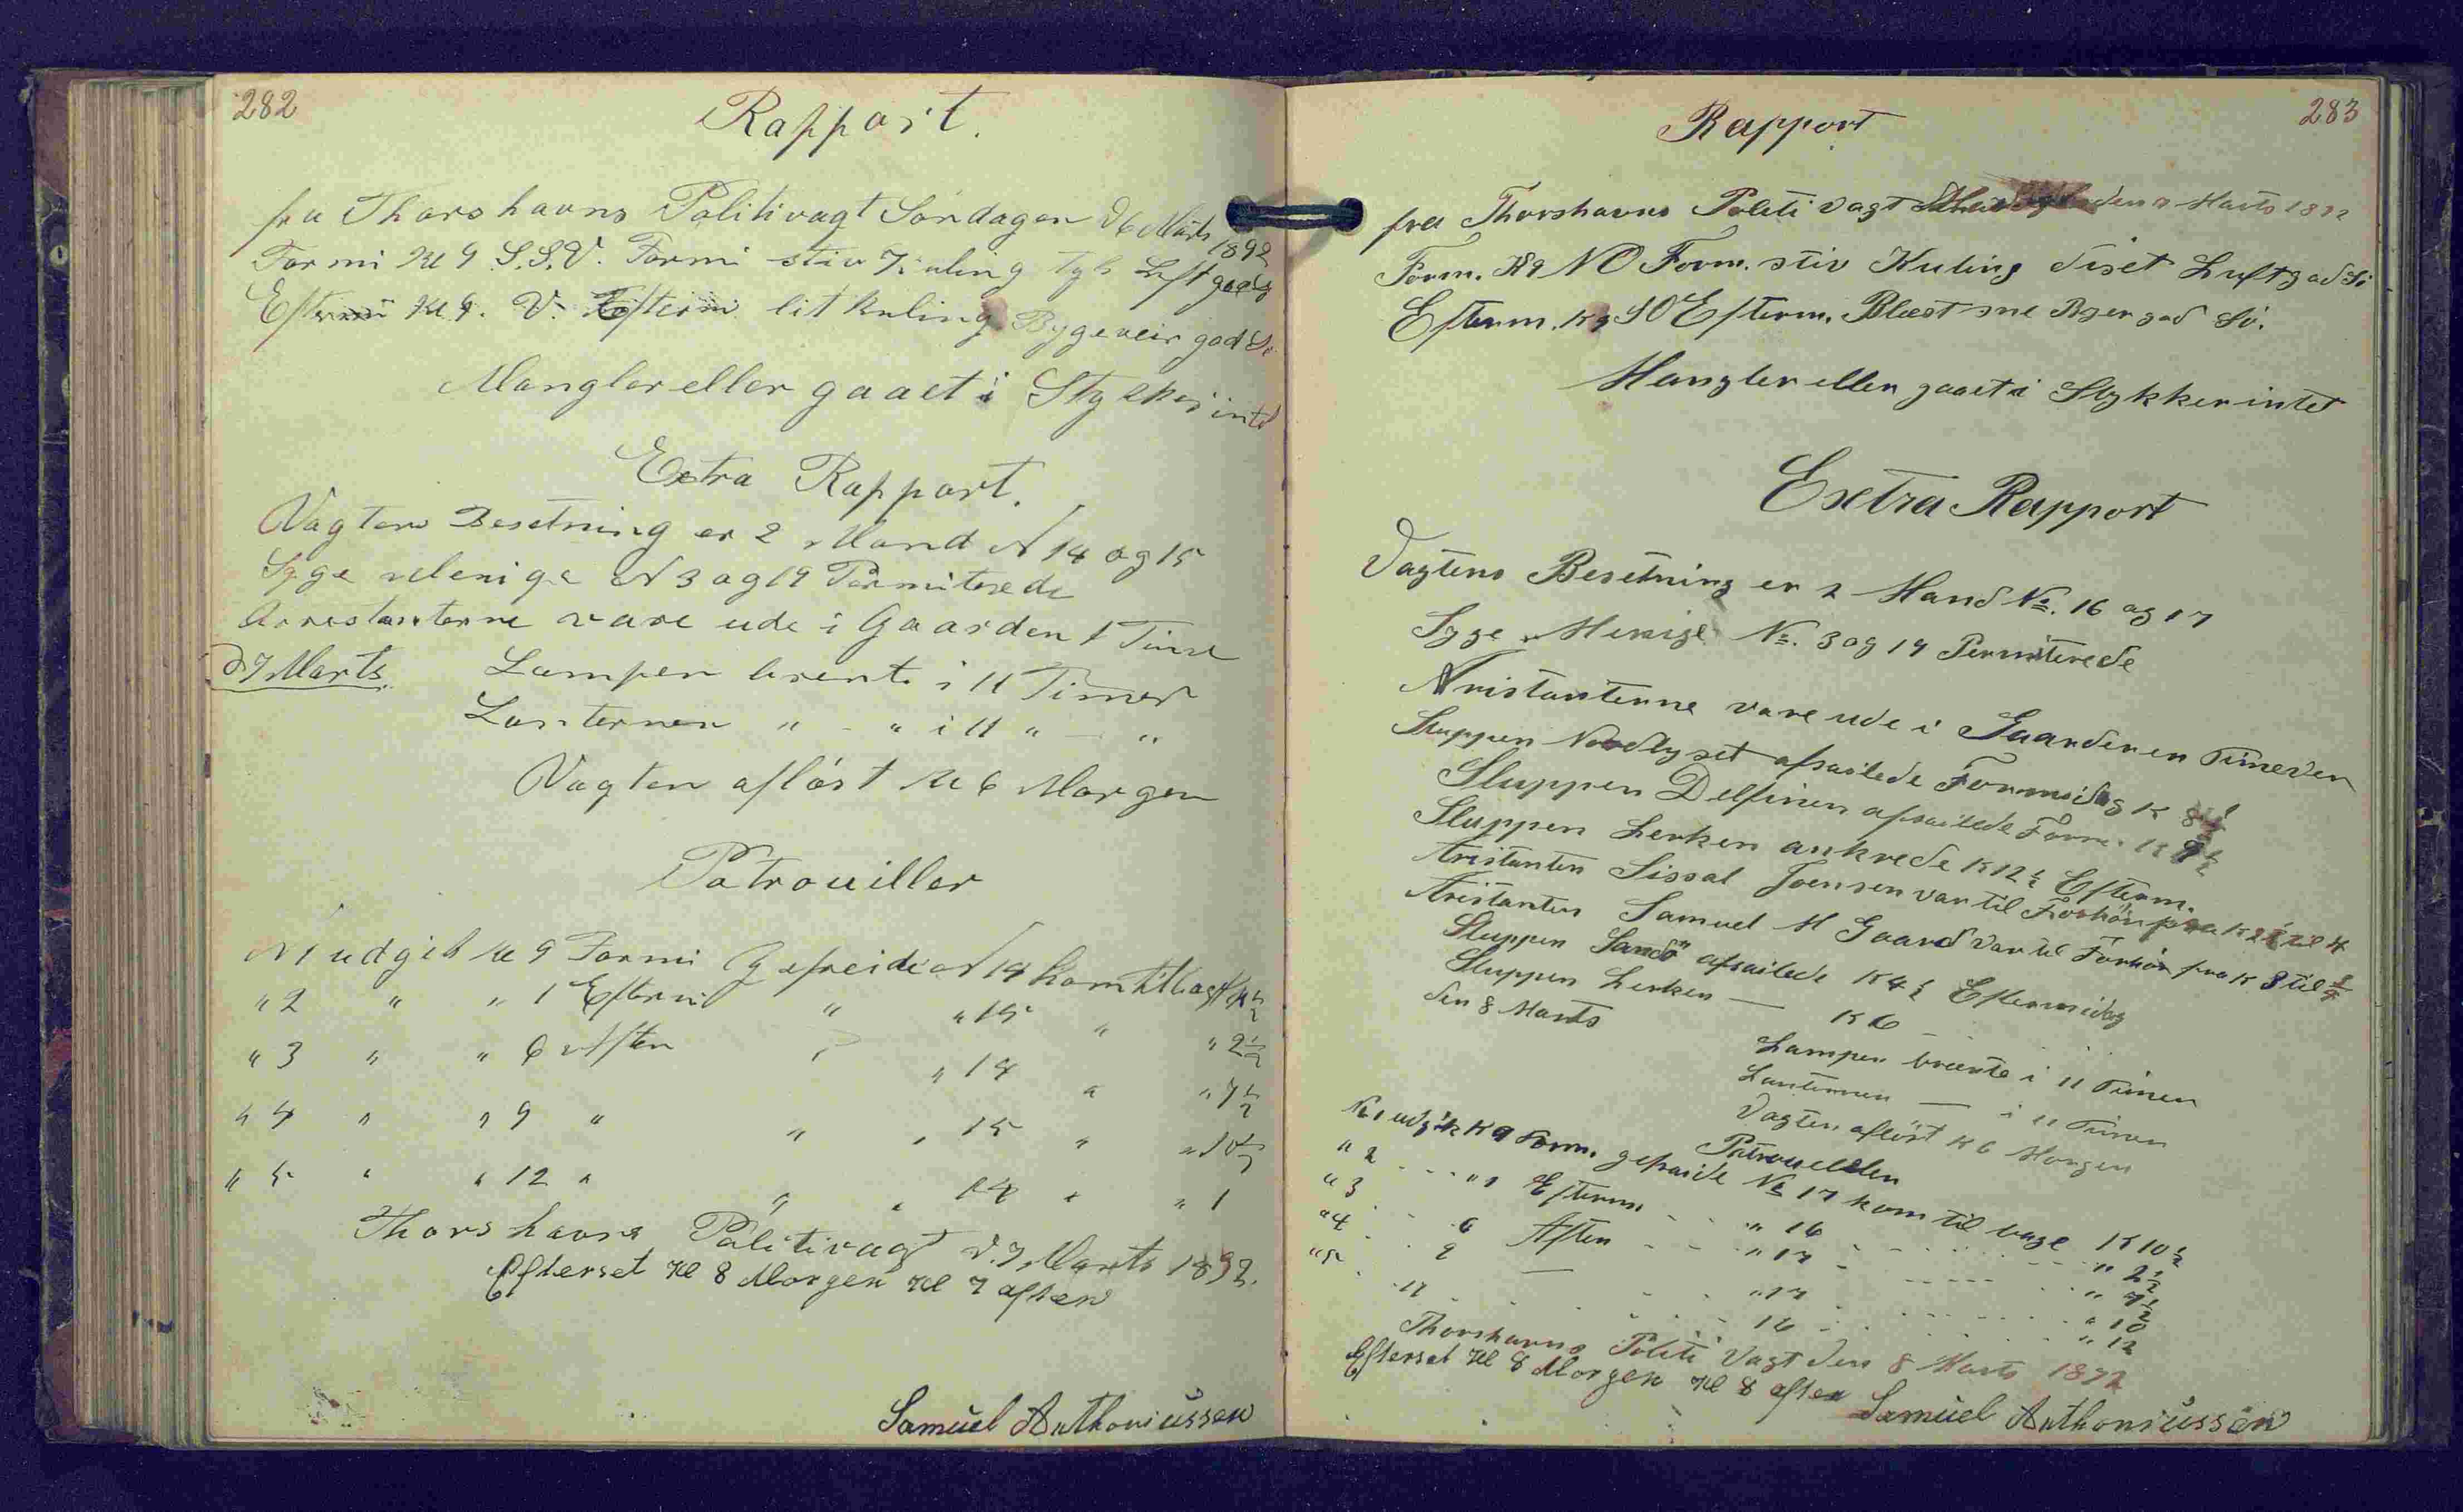 282
Rapport.
fra Thorshavns Politivagt Søndagen d 6 Marts 1892
Formi Kl 9 S.S.V. Formi stiv Kuling tyk Luft god Sø
Eftermi Kl 9. V. Eftermi lit Kuling Bygeveir god Sø
Mangler eller gaaet i Stykker intet
Extra Rapport.
Vagtens Besetning er 2 Mand N 14 og 15
Syge Menige N 3 og 19 Permiterede
Arrestanterne vare ude i Gaarden 1 Time
d 7 Marts. Lampen brente i 11 Timer
Lanternen " - " i 11 " - "
Vagten afløst Kl 6 Morgen
Patrouiller
N 1 udgik Kl 9 Formi Gefreide N 14 kom tilbage Kl 10½
" 2 " " 1 Eftermi " " 15 " " 2½
" 3 " " 6 Aften " " 14 " " 7½
" 4 " " 9 " " " 15 " " 10½
" 5 " " 12 " " " 14 " " 1
Thorshavns Politivagt d. 7 Marts 1892.
Efterset Kl 8 Morgen Kl 7 aften
Samuel Anthoniussen
283
Rapport
fra Thorshavns Politi Vagt den 7 Marts 1892
Form. K 9 NO Form. stiv Kuling diset Luft god Sö
Efterm. K 9 SO Efterm. Blæst sne Byer god Sö.
Mangler eller gaaet i Stykker intet
Exstra Rapport
Vagtens Besetning er 2 Mand No. 16 og 17
Syge Menige No. 3 og 19 Permiterede
Aristanterne vare ude i Gaarden en Time
Sluppen Nordlyset afsailede Formidag K 8½
Sluppen Delfinen afsailede Form. K 9½
Sluppen Lerken ankrede K 12½ Efterm.
Aristanten Sissal Joensen var til Forhör fra K 2½ til 4
Aristanten Samuel M Gaard var til Forhör fra K 8 til
Sluppen Sandö afsailede K 4½ Eftermidag
Sluppen Lerken — K 6 -
den 8 Marts Lampen brente i 11 Timer
Lanternen — i 11 Timer
Vagten aflöst K 6 Morgen
Patrouiller
No 1 udgik K 9 Form. gefraide No 17 kom til bage K 10½
" 2 - - - " 1 Efterm - - " 16 - - - " 2½
" 3 - - 6 Aften - - " 17 - - - " 7½
" 4 - - 9 — - - " 17 - - - " 10
" 5 - - 11 - - - 16 - - - " 12
Thorshavns Politi Vagt den 8 Marts 1892
Efterset Kl 8 Morgen Kl 8 aften Samuel Anthoniussen